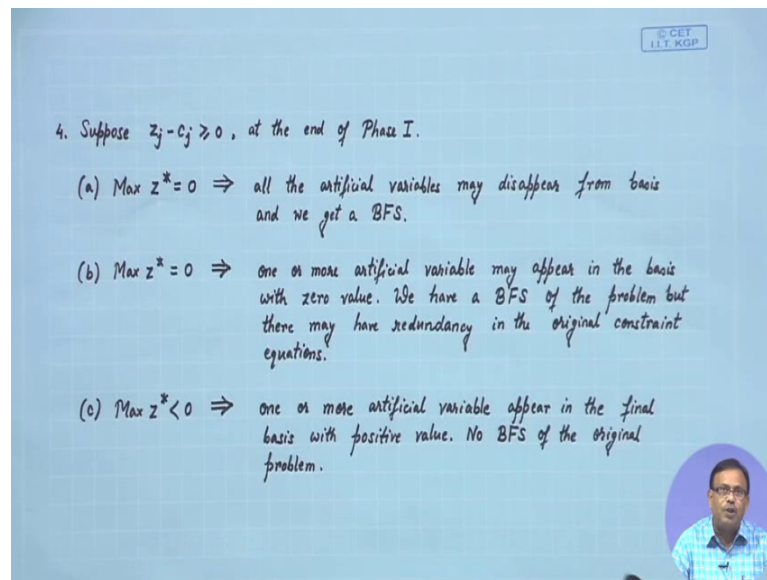 © CET
I.I.T. KGP
4. Suppose Zj - Cj ⩾ 0, at the end of Phase I.
(a) Max Z* = 0 ⇒ all the artificial variables may disappear from basis
and we get a BFS.
(b) Max Z* = 0 ⇒ one or more artificial variable may appear in the basis
with zero value. We have a BFS of the problem but
there may have redundancy in the original constraint
equations.
(c) Max Z* < 0 ⇒ one or more artificial variable appear in the final
basis with positive value. No BFS of the original
problem.